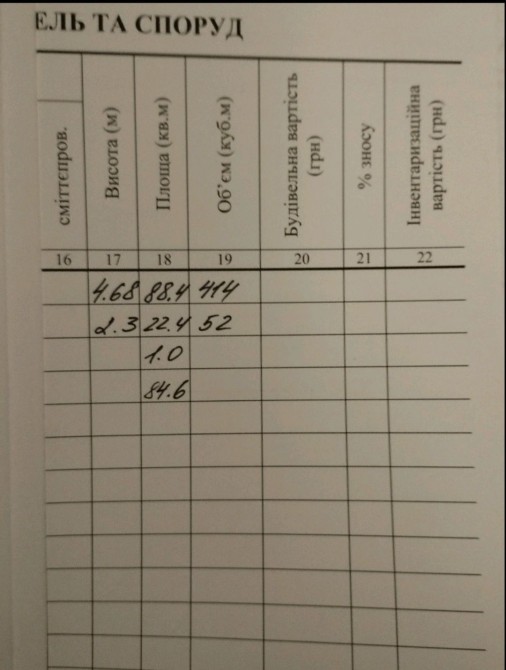 ЕЛЬ ТА СПОРУД
сміттєпров.
Висота (м)
Площа (кв.м)
Об'єм (куб.м)
Будівельна вартість
(грн)
% зносу
Інвентаризаційна
вартість (грн)
16 17 18 19 20 21 22
4.68 88.4 414
2.3 22.4 52
1.0
84.6